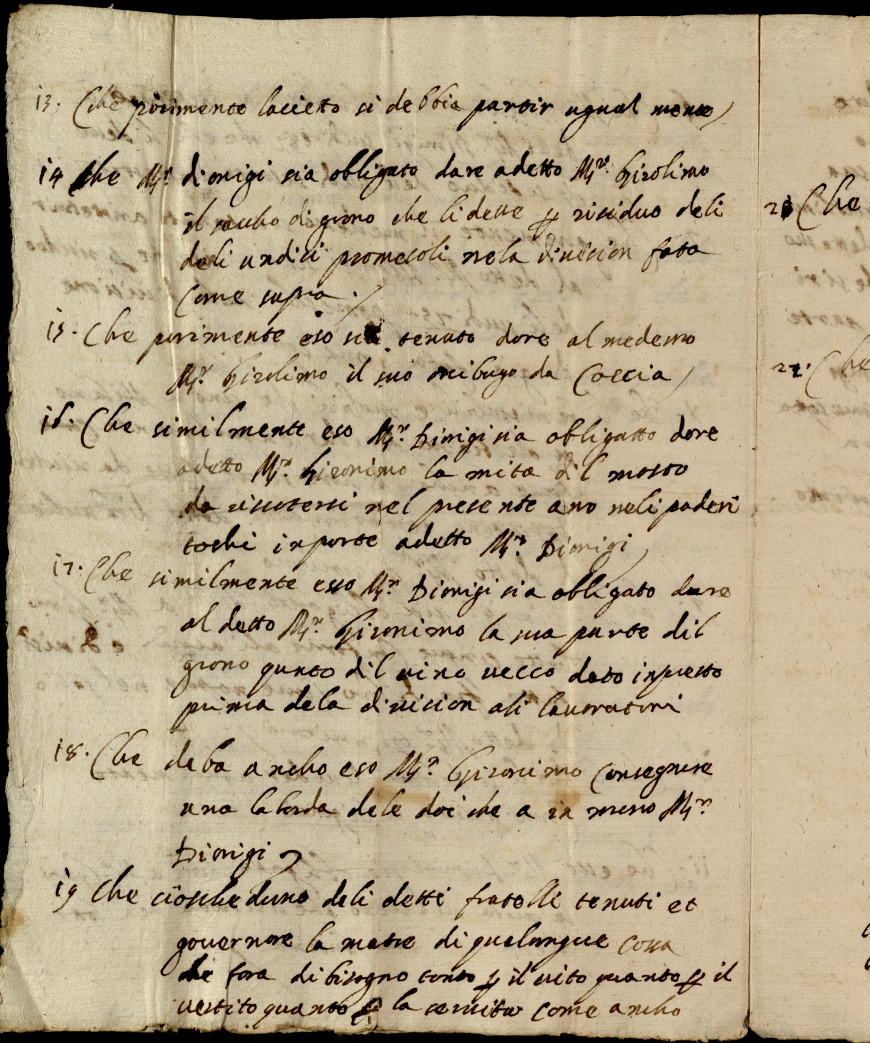 13. Che parimente lacietto si debbia partir ugual mente
14 che Mr. dionigi sia obligato dare a detto Mr. Girolimo
il sacho di grano che li dette p residuo deli
deli undici promesoli nela division fata
come supra.
15. Che parimente eso sia tenuto dare al medemo
Mr. Girolimo il suo arcibugo da Caccia
16. Che similmente eso Mr. Dionigi sia obligatto dare
adetto Mr. Gieronimo la mità dil mosto
da riscotersi nel presente ano neli poderi
tochi in parte adetto Mr. Dionigi
17. Che similmente esso Mr. Dionigi sia obligato dare
al detto Mr. Gironimo la sua parte dil
grano quato dil vino vecco dato inpresto
prima dela division ali lavoratori
18. Che deba ancho eso Mr. Gironimo Consegnare
una labarda dele doi che a in mano Mr.
Dionigi
19 Che ciascheduno deli detti fratelli tenuti et
governare la matre di qualunque cossa
che fara di bisogno tanto p il vito quanto p il
vestito quanto p la servitu come ancho
20 Che
21. Che